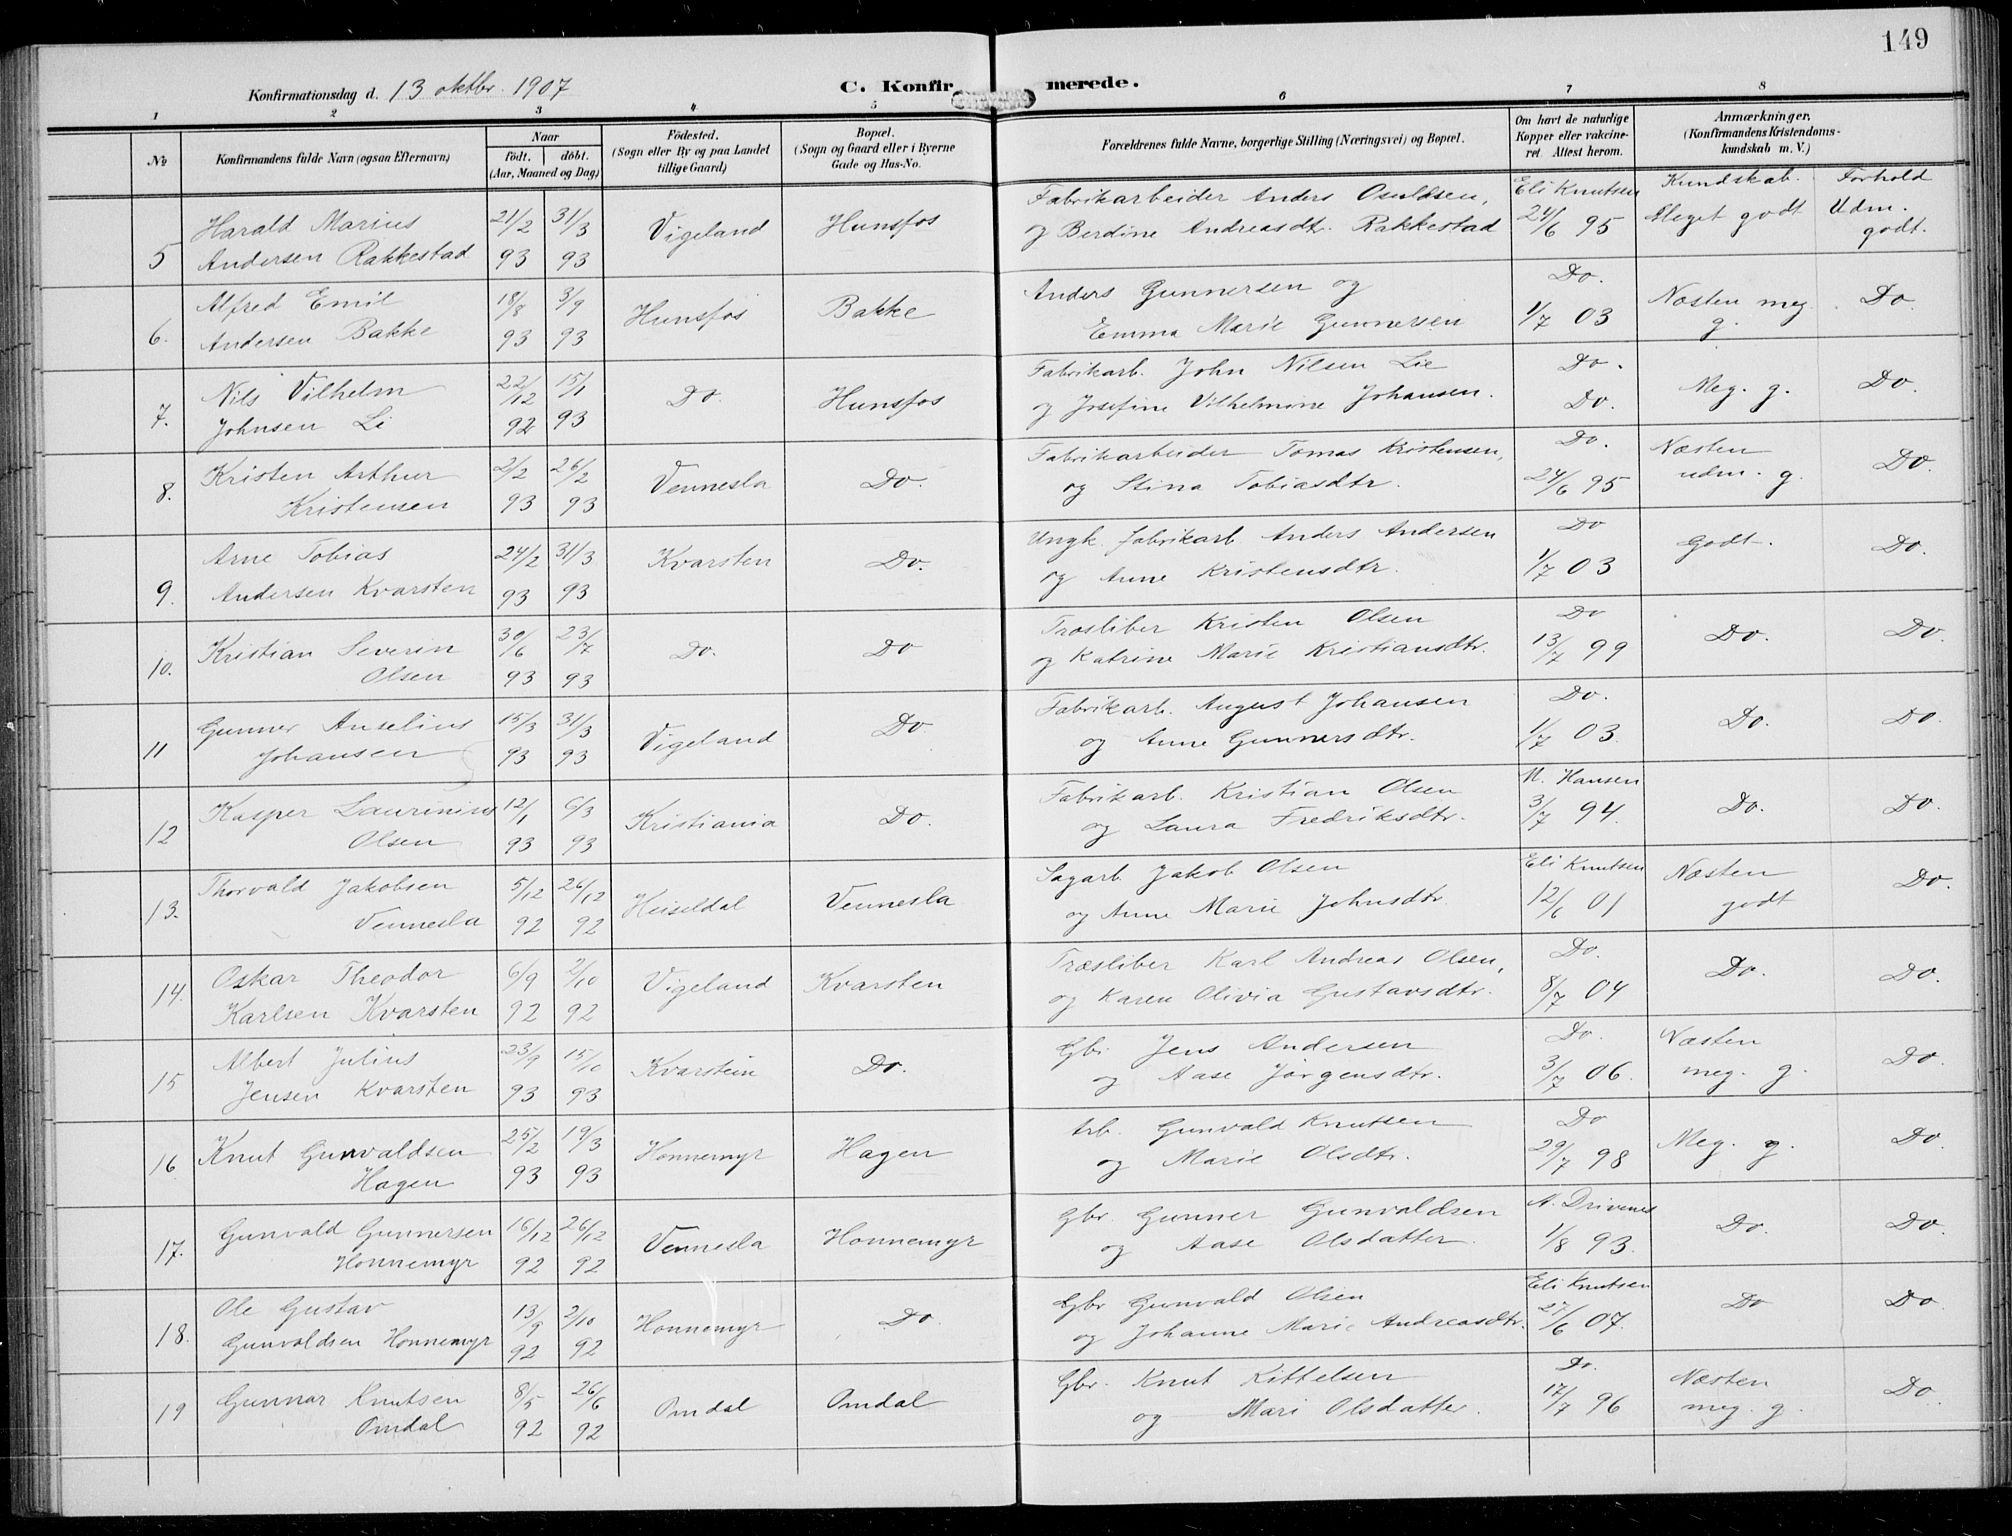 149
Konfirmationsdag d. 13 oktbr. 1907
C. Konfirmerede.
1 2 3 4 5 6 7 8
No
Konfirmandens fulde Navn (ogsaa Efternavn)
Naar
födt. döbt.
(Aar, Maaned og Dag)
Födested.
(Sogn eller By og paa Landet
tillige Gaard)
Bopæl.
(Sogn og Gaard eller i Byerne
Gade og Hus-No.
Forældrenes fulde Navne, borgerlige Stilling (Næringsvei) og Bopæl.
Om havt de naturlige
Kopper eller vakcine-
ret. Attest herom.
Anmærkninger,
(Konfirmandens Kristendoms-
kundskab m. V.)
Kundskab. Forhold
5 Harald Marius
Andersen Rakkestad
21/2 93 31/3 93 Vigeland Hunsfos
Fabrikarbeider Anders Osuldsen,
og Berdine Andreasdtr. Rakkestad
Eli Knutsen
24/6 95 Meget godt Udm. godt.
6. Alfred Emil
Andersen Bakke
18/8 93 3/9 93 Hunsfos Bakke
Anders Gunnersen og
Emma Marie Gunnersen
Do.
1/7 03 Næsten meg. g. Do
7. Nils Vilhelm
Johnsen Li
22/12 92 15/1 93 Do. Hunsfos
Fabrikarb. John Nilsen Lie
og Josefine Vilhelmine Johansen.
Do.
Do. Meg. g. Do
8. Kristen Arthur
Kristensen
2/2 93 26/2 93 Vennesla Do.
Fabrikarbeider Tomas Kristensen,
og Stina Tobiasdtr.
Do.
24/6 95 Næsten udm. g. Do.
9. Arne Tobias
Andersen Kvarsten
24/2 93 31/3 93 Kvarsten Do.
Ungk. fabrikarb Anders Andersen
og Anne Kristensdtr.
Do
1/7 03 Godt. Do.
10. Kristian Severin
Olsen
30/6 93 23/7 93 Do. Do
Træsliber Kristen Olsen
og Katrine Marie Kristiansdtr.
Do
13/7 99 Do. Do.
11 Gunner Anselius
Johansen
15/3 93 31/3 93 Vigeland Do.
Fabrikarb. August Johansen
og Anne Gunnersdtr.
Do.
1/7 03. Do. Do.
12 Kasper Laurinius
Olsen
12/1 93 6/3 93 Kristiania Do.
Fabrikarb. Kristian Olsen
og Laura Fredriksdtr.
M. Hansen
3/7 94. Do. Do.
13. Thorvald Jakobsen
Vennesla
5/12 92 26/12 92 Heiseldal Vennesla
Sagarb. Jakob Olsen
og Anne Marie Johnsdtr
Eli Knutsen
12/6 01 Næsten godt Do.
14. Oskar Theodor
Karlsen Kvarsten
6/9 92 2/10 92 Vigeland Kvarsten
Træsliber Karl Andreas Olsen,
og Karen Olivia Gustavsdtr.
Do.
8/7 04 Do. Do.
15 Albert Julius
Jensen Kvarsten
23/9 93 15/10 93 Kvarstein Do.
Gbr. Jens Andersen
og Aase Jørgensdtr.
Do.
3/7 06. Næsten meg. g. Do
16 Knut Gunvaldsen
Hagen
25/2 93 19/3 93 Honnemyr Hagen
Arb. Gunvald Knutsen
og Marie Olsdtr.
Do
29/7 98 Meg. g. Do.
17. Gunvald Gunnersen
Honnemyr
16/12 92 26/12 92 Vennesla Honnemyr
Gbr. Gunner Gunvaldsen
og Aase Olsdatter.
A. Drivenes
1/8 93. Do. Do.
18. Ole Gustav
Gunvaldsen Honnemyr
13/9 92 2/10 92 Honnemyr Do.
Gbr Gunvald Olsen
og Johanne Marie Andreasdtr.
Eli Knutsen
27/6 07. Do Do.
19 Gunnar Knutsen
Omdal
8/5 92 26/6 92 Omdal Omdal
Gbr. Knut Kittelsen
og Mari Olsdatter.
Do.
17/7 96 Næsten meg. g. Do